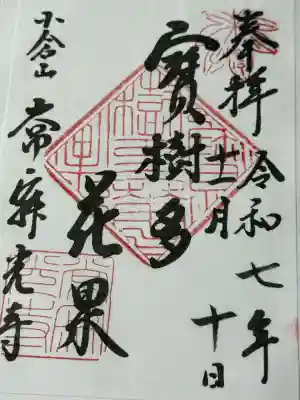 奉拝
令和七年
十一月
十日
寶樹多
花果
小倉山
常寂光寺